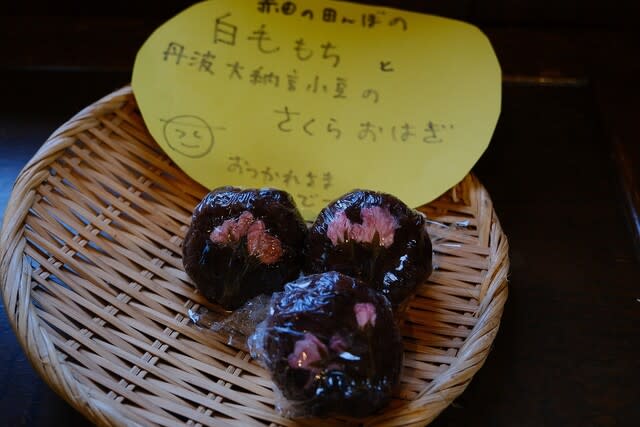 赤田の田んぼの
白毛もちと
丹波大納言小豆の
さくらおはぎ
おつかれさま